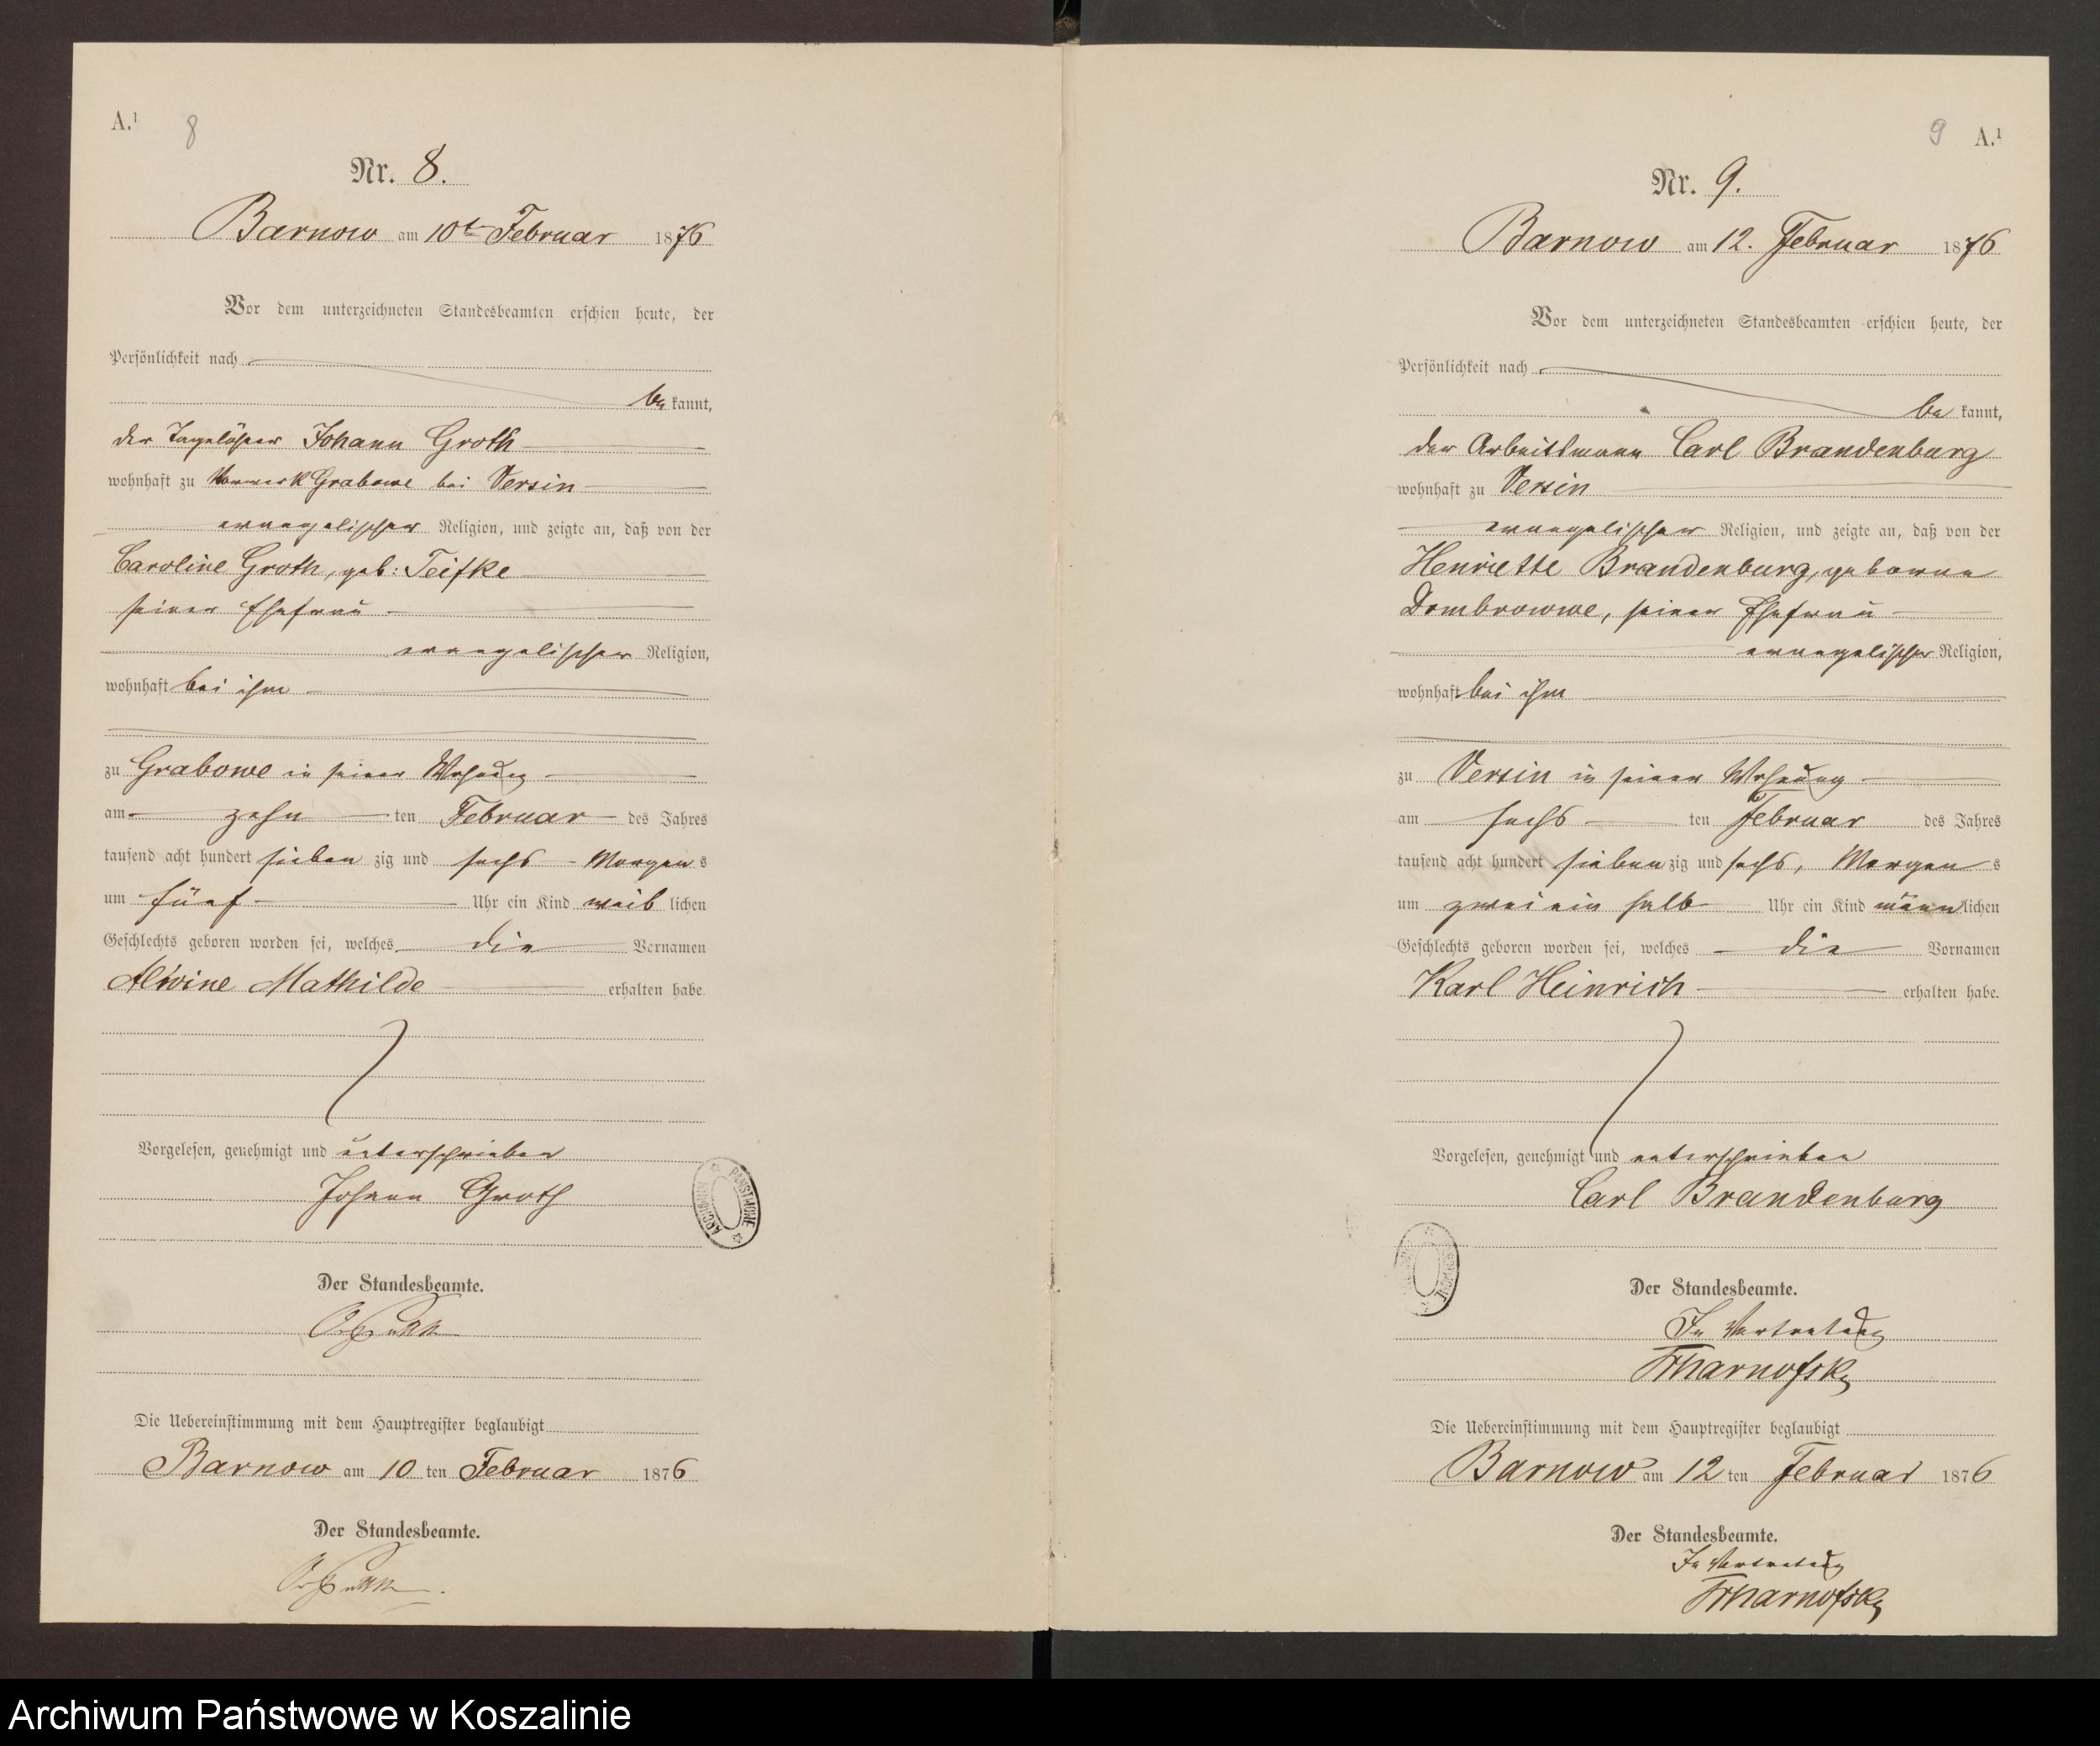 A.¹ 8
Nr. 8.
Barnow am 10t Februar 1876
Vor dem unterzeichneten Standesbeamten erschien heute, der
Persönlichkeit nach
be kannt,
der Tagelöhner Johann Groth
wohnhaft zu Vorwerk Grabowe bei Versin
evangelischer Religion, und zeigte an, daß von der
Caroline Groth, geb: Teifke
seiner Ehefrau
evangelischer Religion,
wohnhaft bei ihm
zu Grabowe in seiner Wohnung
am zehn ten Februar des Jahres
tausend acht hundert sieben zig und sechs Morgen s
um fünf Uhr ein Kind weib lichen
Geschlechts geboren worden sei, welches die Vornamen
Alwine Mathilde erhalten habe
Vorgelesen, genehmigt und unterschrieben
Johann Groth
ARCHIWUM PAŃSTWOWE
Der Standesbeamte.
Die Uebereinstimmung mit dem Hauptregister beglaubigt
Barnow am 10 ten Februar 1876
Der Standesbeamte.
9 A.¹
Nr. 9.
Barnow am 12. Februar 1876
Vor dem unterzeichneten Standesbeamten erschien heute, der
Persönlichkeit nach
be kannt,
der Arbeitsmann Carl Brandenburg
wohnhaft zu Versin
evangelischer Religion, und zeigte an, daß von der
Henriette Brandenburg, geborne
Dombrowwe, seiner Ehefrau
evangelischer Religion,
wohnhaft bei ihm
zu Versin in seiner Wohnung
am sechs ten Februar des Jahres
tausend acht hundert sieben zig und sechs, Morgen s
um zwei ein halb Uhr ein Kind männ lichen
Geschlechts geboren worden sei, welches die Vornamen
Karl Heinrich erhalten habe.
Vorgelesen, genehmigt und unterschrieben
Carl Brandenburg
Der Standesbeamte.
In Vertretung
Die Uebereinstimmung mit dem Hauptregister beglaubigt
Barnow am 12 ten Februar 1876
Der Standesbeamte.
In Vertretung
Archiwum Państwowe w Koszalinie